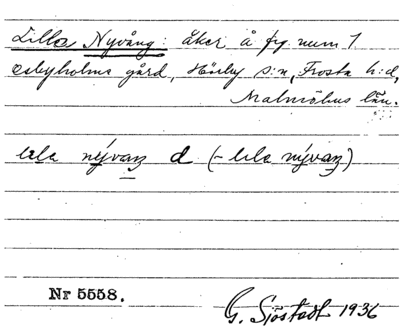 Lilla Nyvång: åker å fg. num 1
Osbyholms gård, Hörby s:n, Frosta h:d,
Malmöhus län.
lɩla nývaŋ d (- lɩla nývaŋ)
Nr 5558.
G. Sjöstedt 1936